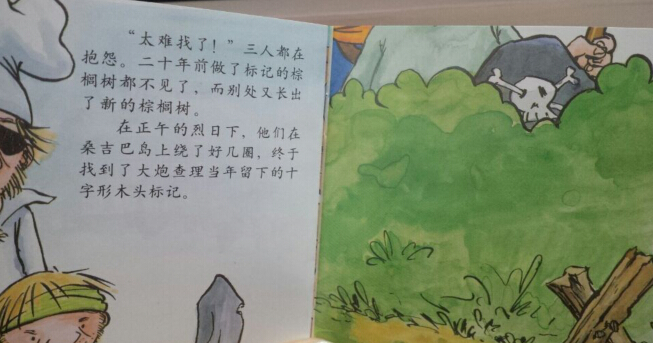 “太难找了！”三人都在
抱怨。二十年前做了标记的棕
榈树都不见了，而别处又长出
了新的棕榈树。
在正午的烈日下，他们在
桑吉巴岛上绕了好几圈，终于
找到了大炮查理当年留下的十
字形木头标记。